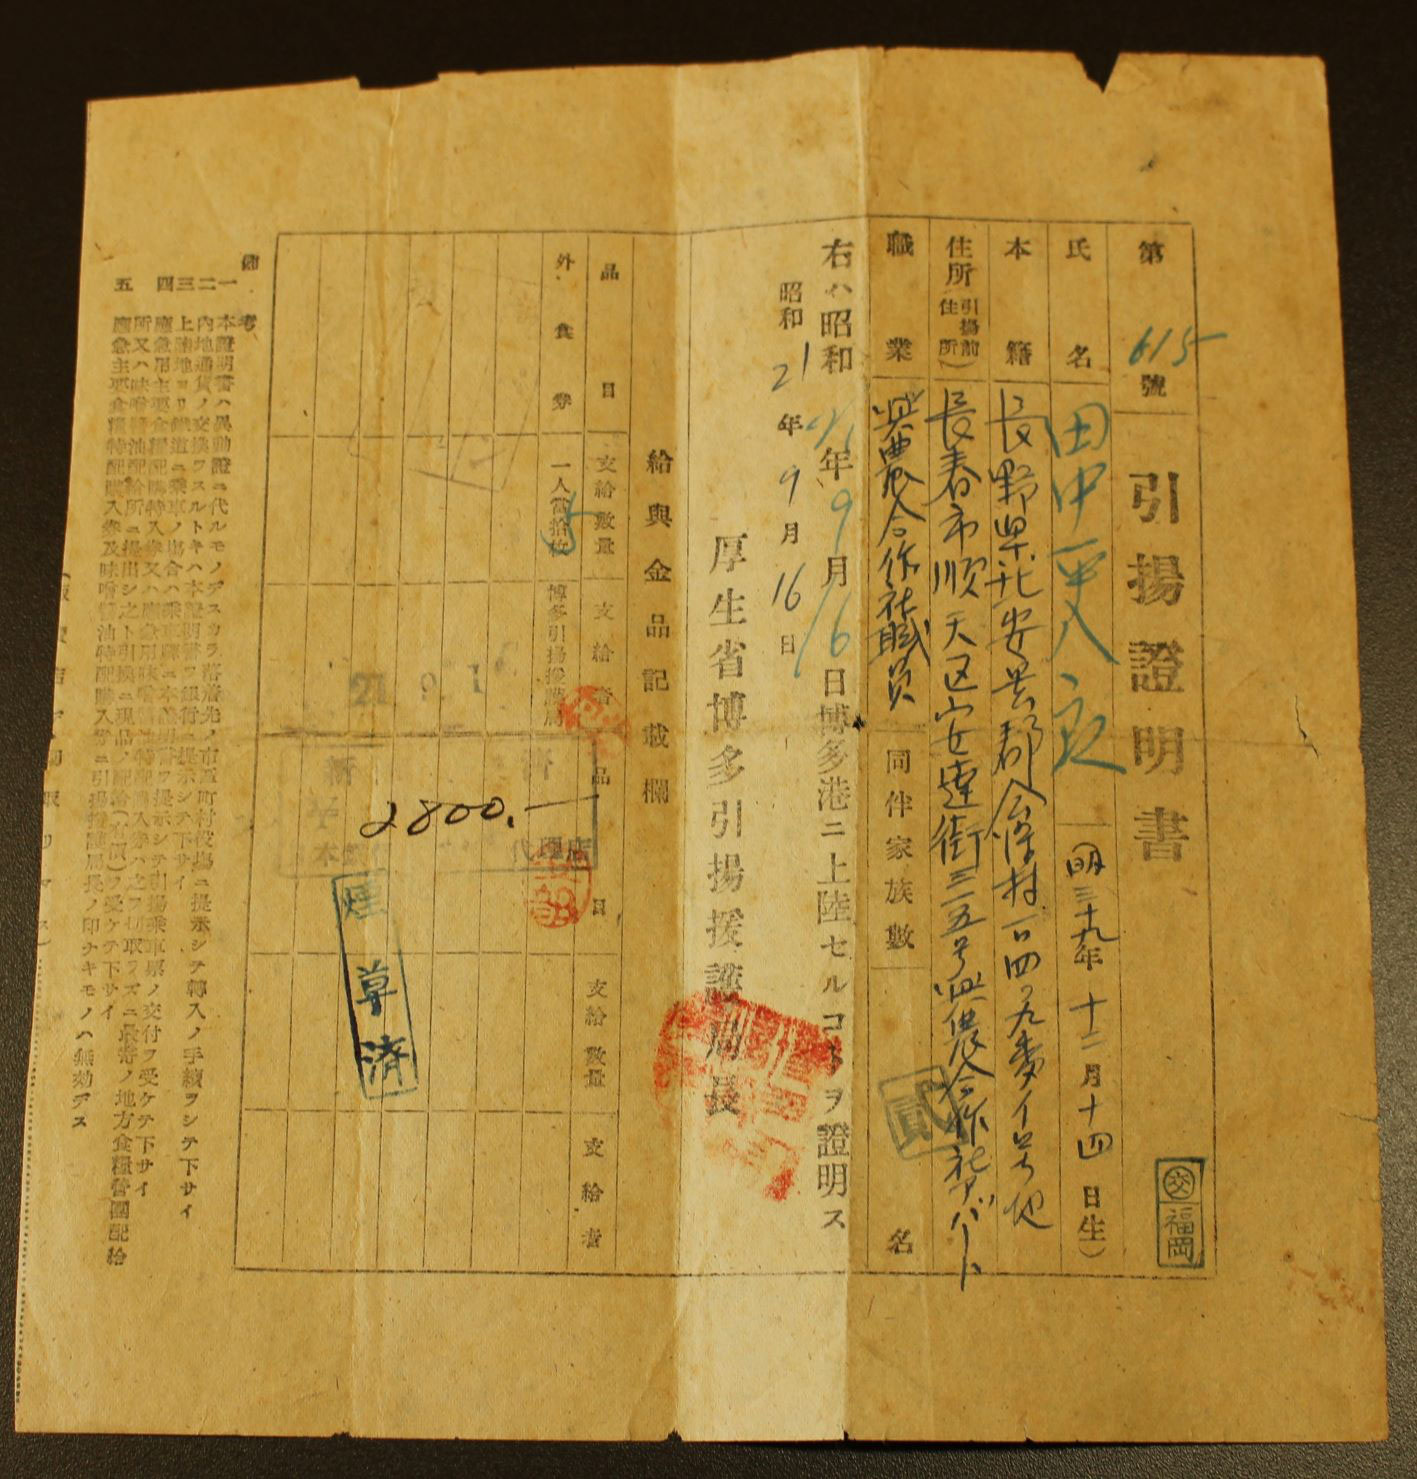 第 615 號
引揚證明書
㊋福岡
氏名
田中
(明三十九年 十二月十四日生)
本籍
長野県北安曇郡会染村一四〇九番イ号地
住所(引揚前住所)
長春市順天区安達街三一五号興農合作社アパート
職業
興農合作社職員
同伴家族數
貳
名
右ハ昭和21年9月16日博多港ニ上陸セルコトヲ證明ス
昭和21年9月16日
厚生省博多引揚援護局長
給與金品記載欄
品目
支給數量
支給者
品目
支給數量
支給者
外食券
一人當拾枚
5
博多引揚援護局
21. 9. 1
2800.—
代理店
煙草済
備考
一 本證明書ハ異動證ニ代ルモノデスカラ落着先ノ市區町村役場ニ提示シテ轉入ノ手續ヲシテ下サイ
二 内地通貨ノ交換ヲスルトキハ本證明書ヲ銀行ニ提示シテ下サイ
三 上陸地ヨリ鐵道ニ乘車ノ場合ハ乘車驛ニ本證明書ヲ提示シテ引揚乘車票ノ交付ヲ受ケテ下サイ
四 應急用主要食糧配購特入券又ハ應急用味噌醤油特配購入券ハ之ヲ切取ラズニ最寄ノ地方食糧營團配給
所又ハ味噌醤油配給所ニ提出シ之ト引換ニ現品ノ配給(有償)ヲ受ケテ下サイ
五 應急主要食糧特配購入券及味噌醤油特配購入券ニ引揚援護局長ノ印ナキモノハ無効デス